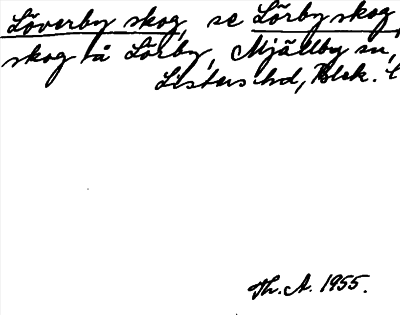 Löverby skog, se Lörby skog,
skog å Lörby, Mjällby sn,
Listers hd, Blek. l
Th. A. 1955.